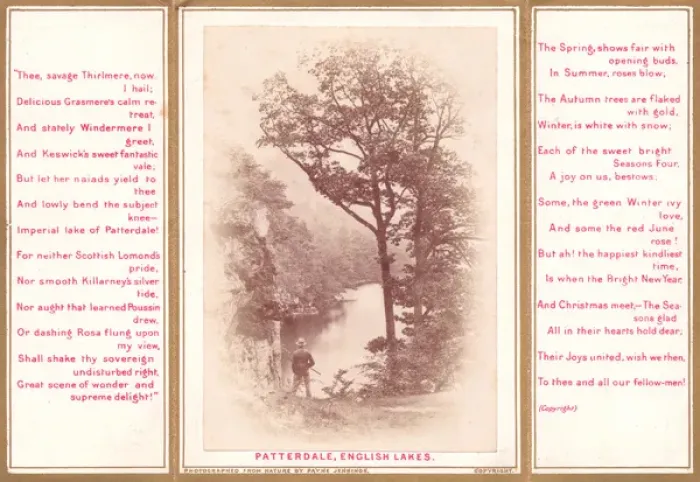 "Thee, savage Thirlmere, now
I hail;
Delicious Grasmere's calm re-
treat,
And stately Windermere I
greet,
And Keswick's sweet fantastic
vale;
But let her naiads yield to
thee
And lowly bend the subject
knee—
Imperial lake of Patterdale!
For neither Scottish Lomond's
pride,
Nor smooth Killarney's silver
tide,
Nor aught that learned Poussin
drew,
Or dashing Rosa flung upon
my view,
Shall shake thy sovereign
undisturbed right,
Great scene of wonder and
supreme delight!"
PATTERDALE, ENGLISH LAKES.
PHOTOGRAPHED FROM NATURE BY PAYNE JENNINGS.
COPYRIGHT.
The Spring, shows fair with
opening buds,
In Summer, roses blow;
The Autumn trees are flaked
with gold,
Winter, is white with snow;
Each of the sweet bright
Seasons Four,
A joy on us, bestows;
Some, the green Winter ivy
love,
And some the red June
rose!
But ah! the happiest kindliest
time,
Is when the Bright New Year,
And Christmas meet,—The Sea-
sons glad
All in their hearts hold dear;
Their Joys united, wish we then,
To thee and all our fellow-men!
(Copyright)